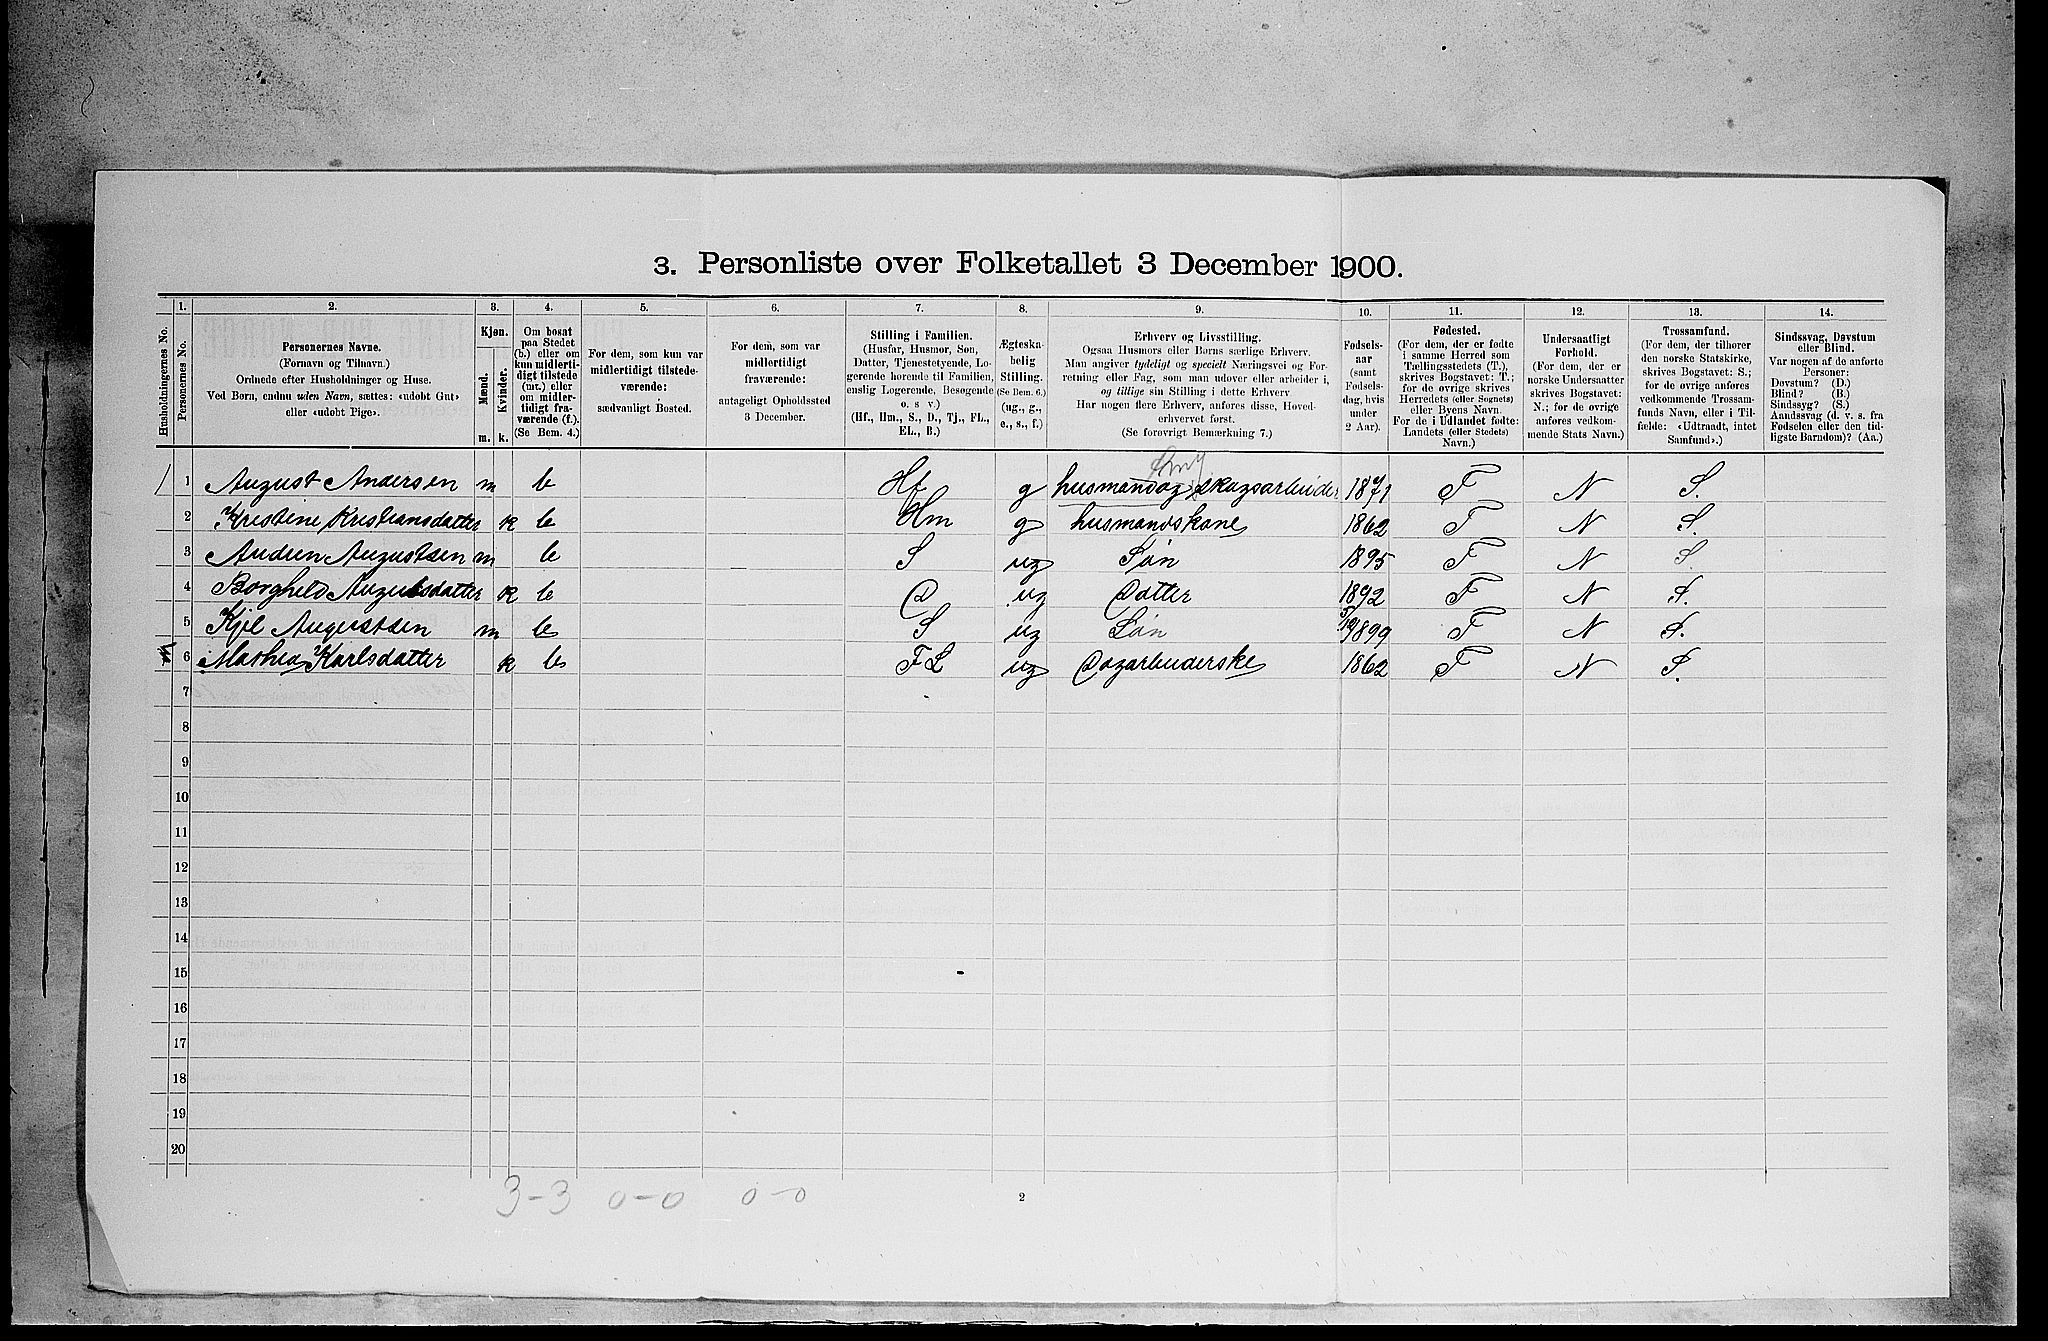 3. Personliste over Folketallet 3 December 1900.
1. 2. 3. 4. 5. 6. 7. 8. 9. 10. 11. 12. 13. 14.
Husholdningernes No.
Personernes No.
Personernes Navne.
(Fornavn og Tilnavn.)
Ordnede efter Husholdninger og Huse.
Ved Børn, endnu uden Navn, sættes: «udøbt Gut»
eller «udøbt Pige».
Kjøn.
Mænd.
Kvinder.
m. k.
Om bosat
paa Stedet
(b.) eller om
kun midlerti-
digt tilstede
(mt.) eller
om midler-
tidigt fra-
værende (f.).
(Se Bem. 4.)
For dem, som kun var
midlertidigt tilstede-
værende:
sædvanligt Bosted.
For dem, som var
midlertidigt
fraværende:
antageligt Opholdssted
3 December.
Stilling i Familien.
(Husfar, Husmor, Søn,
Datter, Tjenestetyende, Lo-
gerende hørende til Familien,
enslig Logerende, Besøgende
o. s v.)
(Hf., Hm., S., D., Tj., FL.,
EL., B.)
Ægteska-
belig
Stilling.
(Se Bem. 6.)
(ug., g.,
e., s., f.)
Erhverv og Livsstilling.
Ogsaa Husmors eller Børns særlige Erhverv.
Man angiver tydeligt og specielt Næringsvei og For-
retning eller Fag, som man udøver eller arbeider i,
og tillige sin Stilling i dette Erhverv
Har nogen flere Erhverv, anføres disse, Hoved-
erhvervet først.
(Se forøvrigt Bemærkning 7.)
Fødsels-
aar
(samt
Fødsels-
dag, hvis
under
2 Aar).
Fødested.
(For dem, der er fødte
i samme Herred som
Tællingsstedets (T.),
skrives Bogstavet: T.;
for de øvrige skrives
Herredets (eller Sognets)
eller Byens Navn.
For de i Udlandet fødte:
Landets (eller Stedets)
Navn.)
Undersaatligt
Forhold.
(For dem, der er
norske Undersaatter
skrives Bogstavet:
N.; for de øvrige
anføres vedkom-
mende Stats Navn.)
Trossamfund.
(For dem, der tilhører
den norske Statskirke,
skrives Bogstavet: S.;
for de øvrige anføres
vedkommende Trossam-
funds Navn, eller i Til-
fælde: «Udtraadt, intet
Samfund».)
Sindssvag, Døvstum
eller Blind.
Var nogen af de anførte
Personer:
Døvstum? (D.)
Blind? (B.)
Sindssyg? (S.)
Aandssvag (d. v. s. fra
Fødselen eller den tid-
ligste Barndom)? (Aa.)
1 August Andersen m b Hf g husmand og skogsarbeider 1871 T N S.
2 Kristine Kristiansdatter k b Hm g husmandskone 1862 T N S.
3 Andreen Augustsen m b S ug Søn 1895 T N S
4 Borghild Augustsdatter k b D ug Datter 1892 T N S.
5 Kjel Augustsen m b S ug Søn 1899 T N S.
6 Mathea Karlsdatter k b FL ug Dagarbeiderske 1862 T N S.
7
8
9
10
11
12
13
14
15
16
17
18
19
20
3-3 0-0 0-0
2